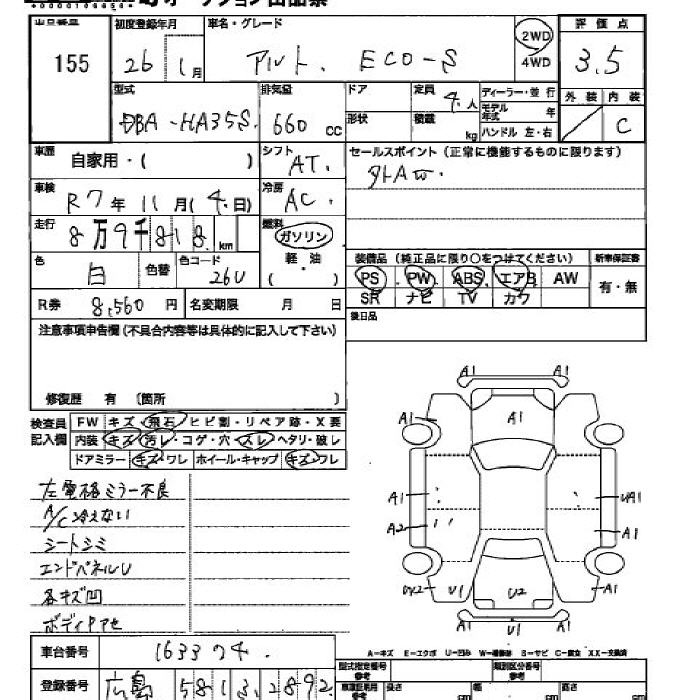 出品番号 初度登録年月 車名・グレード 2WD 評価点
155 26 1月 アルト. ECO-S 4WD 3.5
型式 排気量 ドア 定員 4.人 ディーラー・並行 外装 内装
DBA-HA35S. 660cc 形状 積載 kg モデル年式 年 C
ハンドル 左・右
車歴 自家用・( ) シフト AT. セールスポイント(正常に機能するものに限ります)
車検 R7年11月(4.日) 冷房 AC.
走行 8万9千818km 燃料 ガソリン
軽油
( )
色 白 色替 色コード 26U 装備品(純正品に限り○をつけてください) 新車保証書
PS PW ABS エアB AW 有・無
R券 8,560円 名変期限 月 日 SR ナビ TV カワ
注意事項申告欄(不具合内容等は具体的に記入して下さい) 後日品
修復歴 有 〔箇所 〕
検査員 FW キズ・飛石・ヒビ割・リペア跡・X要
記入欄 内装 キズ・汚レ・コゲ・穴・スレ・ヘタリ・破レ
ドアミラー キズ・ワレ ホイール・キャップ キズ・ワレ
左電格ミラー不良
A/C冷えない
シートシミ
エンドパネルU
各キズ凹
ボディアセ
A1 A1
A1 A1 A1
A1 UA1
A2 A1
U1 U2 A1
A1 U1 A1
A-キズ E-エクボ U-凹み W-補修跡 S-サビ C-腐食 XX-交換済
車台番号 163374. 型式指定番号 参考 類別区分番号 参考
登録番号 広島 581 3 2892 長さ cm 幅 cm 高さ cm